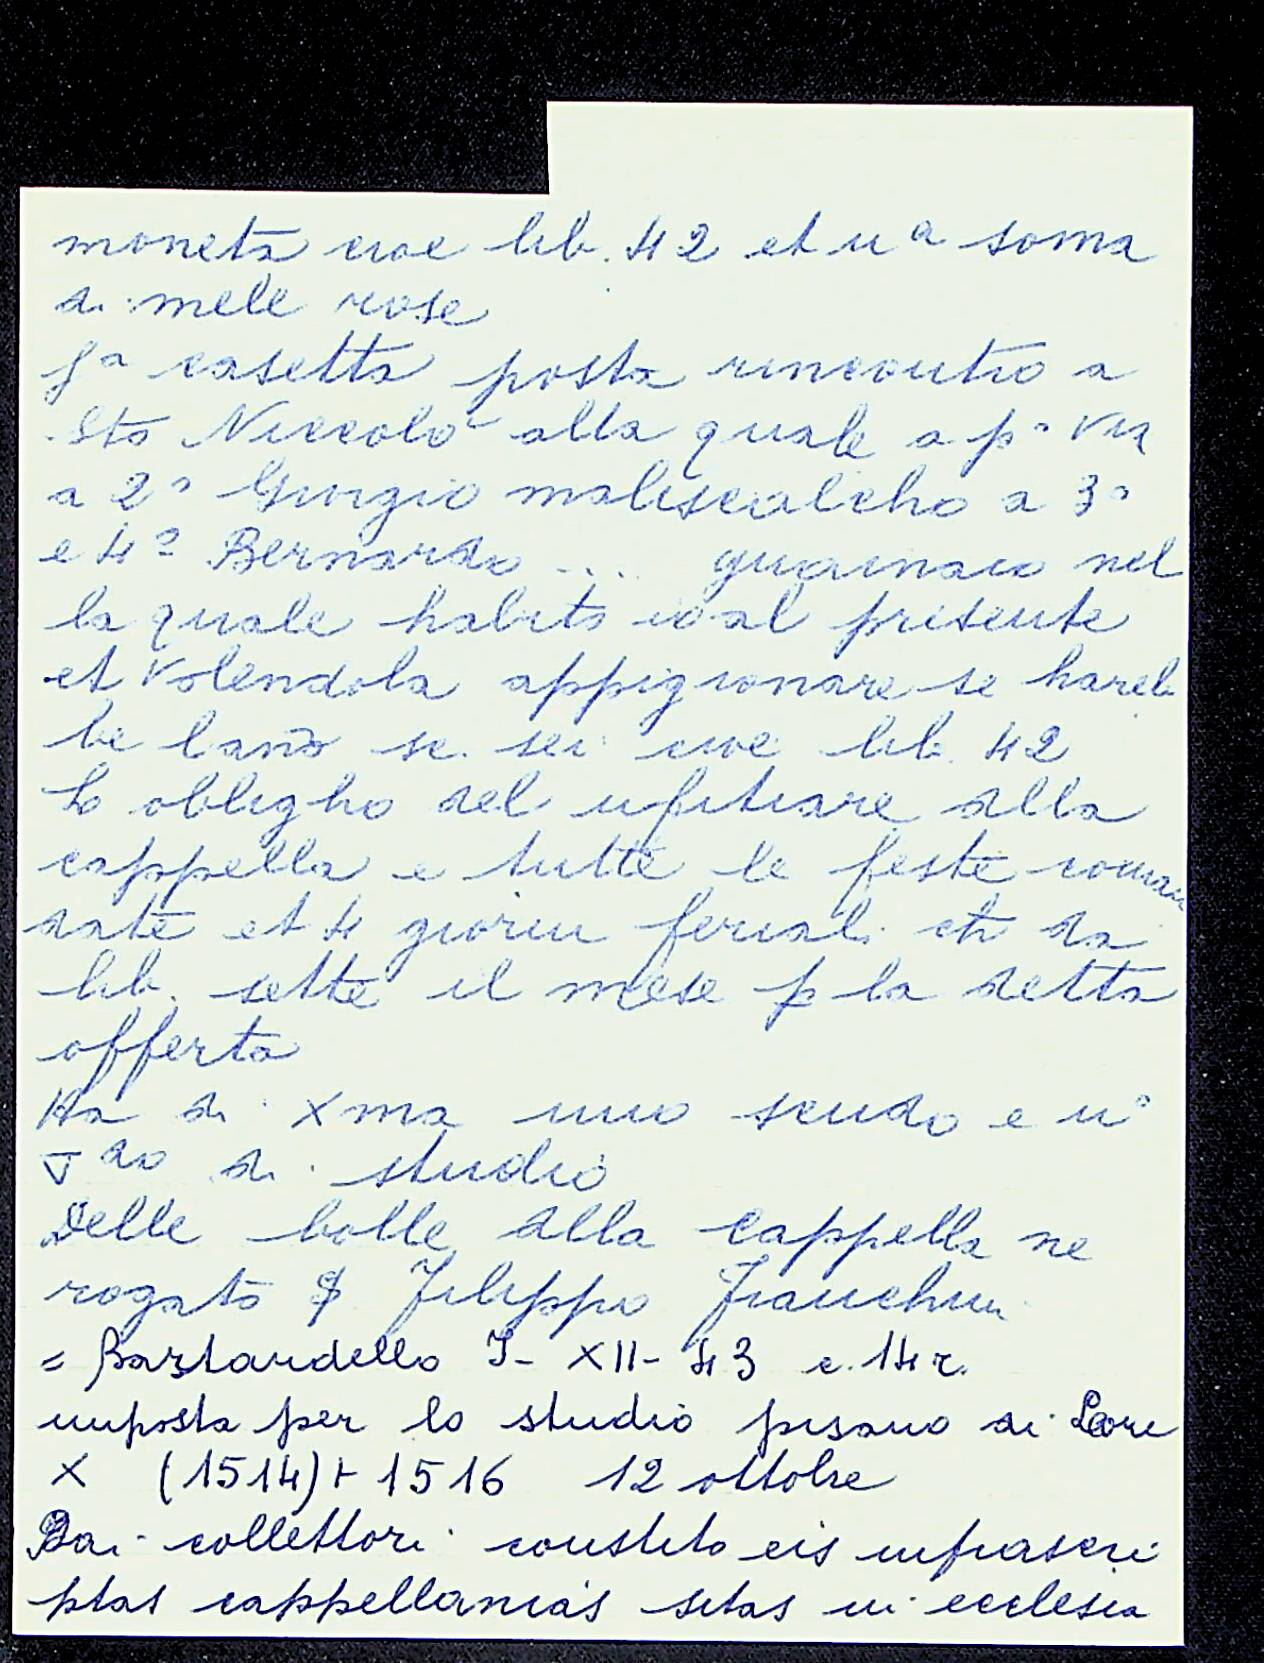 moneta cioe lib. 42 et nª soma
di mele rose
Jª casetta posta rincontro a
Sto Niccolò alla quale a pº via
a 2º Giorgio maliscalcho a 3º
e 4º Bernardo ... guainaio nel
la quale habito io al presente
et volendola appigionare se hareb
be lano sc. sei cioe lib. 42
Lo obligho del ufitiare alla
cappella e tutte le feste coman
date et 4 giorni feriali ch da
lib. sette il mese p la detta
offerta
Ha di Xma uno scudo e nº
do di studio
Delle bolle alla Cappella ne
rogato Filippo Franchini
= Bastardello J - XII - 43 c. 14 r.
imposta per lo studio pisano di Leone
X (1514) + 1516 12 ottobre
Dai collettori constito eis infrascri
ptas cappellanias sitas in ecclesia